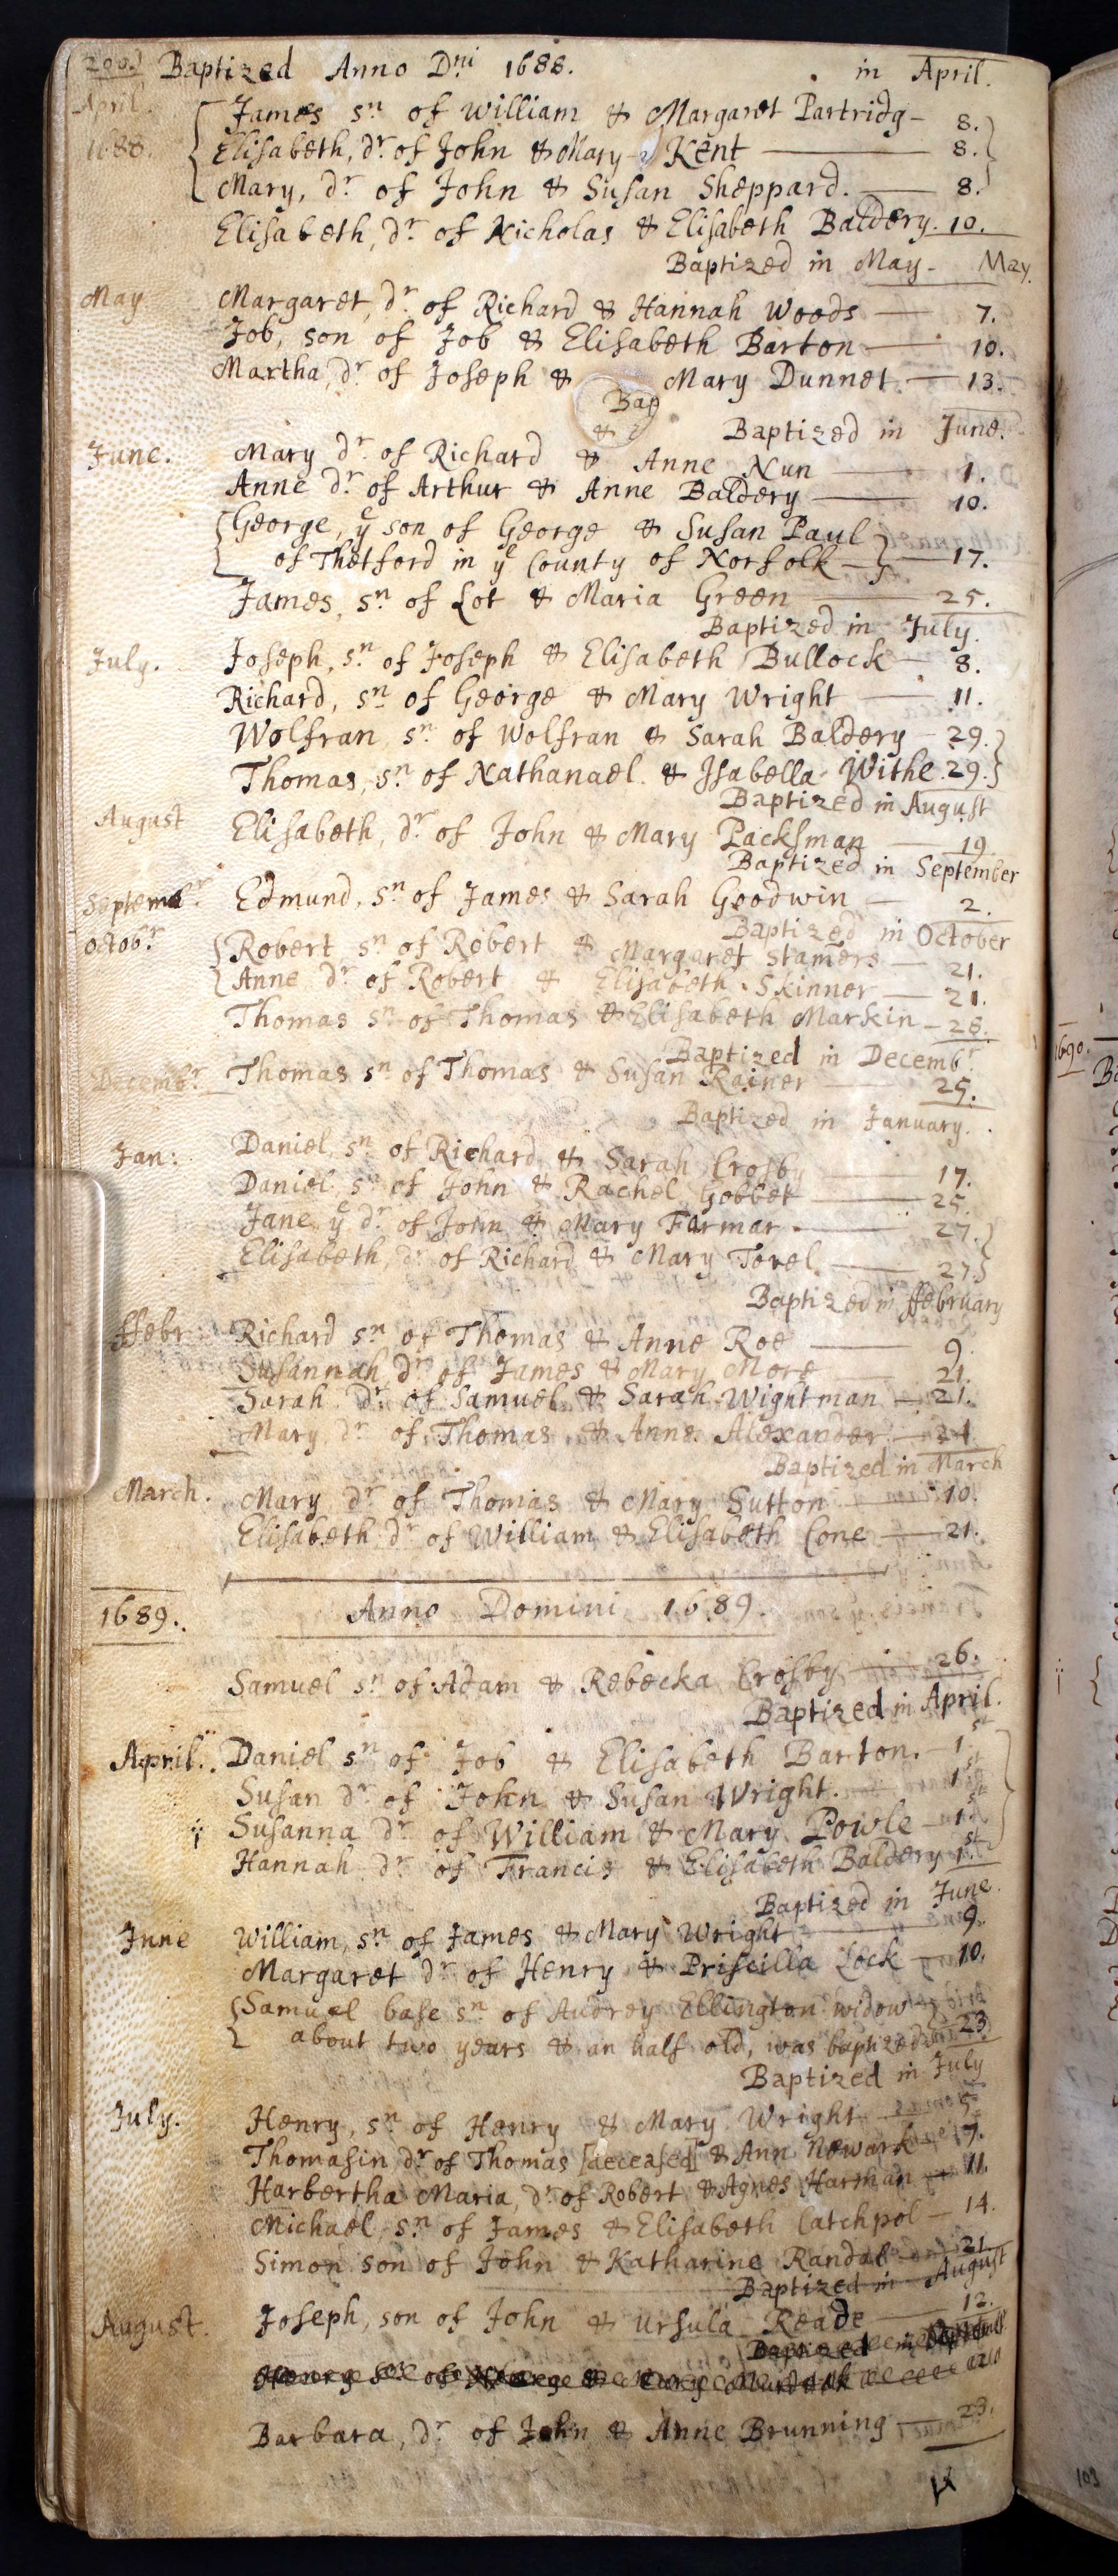 200. Baptized Anno Dni 1688. in April.
April. James sn of William & Margaret Partridg - 8.
1688. Elisabeth, dr. of John & Mary Kent 8.
Mary, dr of John & Susan Sheppard. 8.
Elisabeth, dr of Nicholas & Elisabeth Baldery. 10.
Baptized in May - May.
May Margaret, dr of Richard & Hannah Woods 7.
Job, son of Job & Elisabeth Barton 10.
Martha, dr of Joseph & Mary Dunnet. 13.
Bap
&
Baptized in June.
June. Mary dr of Richard & Anne Nun 1.
Anne dr of Arthur & Anne Baldery 10.
George, ye son of George & Susan Paul
of Thetford in ye County of Norfolk 17.
James, sn of Lot & Maria Green 25.
Baptized in July.
July. Joseph, sn of Joseph & Elisabeth Bullock 8.
Richard, sn of George & Mary Wright 11.
Wolfran sn of Wolfran & Sarah Baldery 29.
Thomas, sn of Nathanael & Isabella Withe. 29.
Baptized in August
August Elisabeth, dr of John & Mary Packsman 19
Baptized in September
Septembr Edmund, sn of James & Sarah Goodwin 2.
Baptized in October
Octobr. Robert sn of Robert & Margaret Stamers 21.
Anne dr of Robert & Elisabeth Skinner 21.
Thomas sn of Thomas & Elisabeth Markin 28.
Baptized in Decembr
Decembr Thomas sn of Thomas & Susan Rainer 25.
Baptized in January.
Jan: Daniel, sn of Richard & Sarah Crosby 17.
Daniel sn of John & Rachel Gobbet 25.
Jane ye dr of John & Mary Farmar 27.
Elisabeth, dr of Richard & Mary Terel. 27.
Baptized in ffebruary
ffebr: Richard sn of Thomas & Anne Roe 9.
Susannah dr of James & Mary More 21.
Sarah dr of Samuel & Sarah Wightman 21.
Mary dr of Thomas & Anne Alexander 24
Baptized in March
March. Mary dr of Thomas & Mary Sutton 10.
Elisabeth dr of William & Elisabeth Cone 21.
1689. Anno Domini 1689.
Samuel sn of Adam & Rebecka Crosby 26.
Baptized in April.
April. Daniel sn of Job & Elisabeth Barton. 1st
Susan dr of John & Susan Wright. 1st
Susanna dr of William & Mary Powle 1st
Hannah dr of Francis & Elisabeth Baldery 1st
Baptized in June.
June William, sn of James & Mary Wright 9.
Margaret dr of Henry & Priscilla Lock 10.
Samuel base sn of Audrey Ellington widow
about two years & an half old, was baptized 23
Baptized in July
July. Henry, sn of Henry & Mary Wright 5.
Thomasin dr of Thomas [deceased] & Ann Newark 7.
Harbertha Maria, dr of Robert & Agnes Harman 11.
Michael, sn of James & Elisabeth Catchpol 14.
Simon son of John & Katharine Randal 21.
Baptized in August
August. Joseph, son of John & Ursula Reade 12.
Baptized in
Barbara, dr of John & Anne Brunning 23.
1690.
103